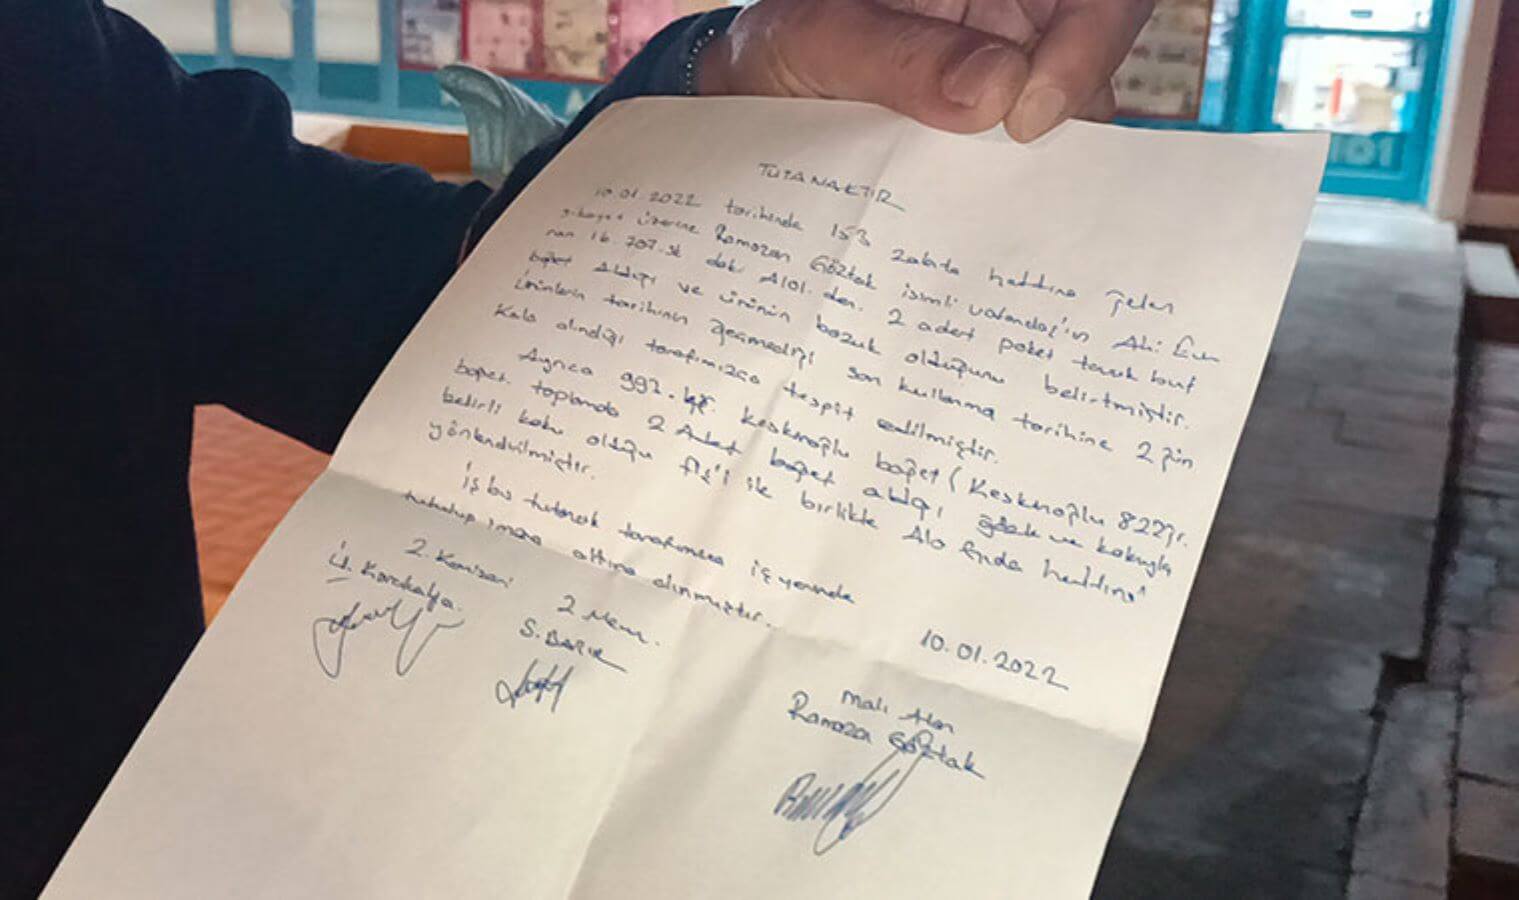 TUTANAKTIR
10.01.2022 tarihinde 153 zabıta hattına gelen
şikayet üzerine Ramazan Göztak isimli vatandaş'ın Ahi Evr
nan 16. 707. sk daki A101. den. 2 adet paket tavuk but
bapet Aldığı ve ürünün bozuk olduğunu belirtmiştir.
Ürünlerin tarihinin geçmediği son kullanma tarihine 2 gün
kala alındığı tarafımızca tespit edilmiştir.
Ayrıca 992. Keskinoğlu bapet (Keskinoğlu 822gr.
bapet. toplamda 2 Adet bapet aldığı ve kokuyla
belirli koku olduğu fiş'i ile birlikte Alo Gıda hattına
yönlendirilmiştir.
İş bu tutanak tarafımızca iş yerinde
tutulup imza altına alınmıştır.
10.01.2022
Z. Komiseri
Ü. Karakaya.
Z Mem.
S. BARIK
Malı Alan
Ramazan Göztak